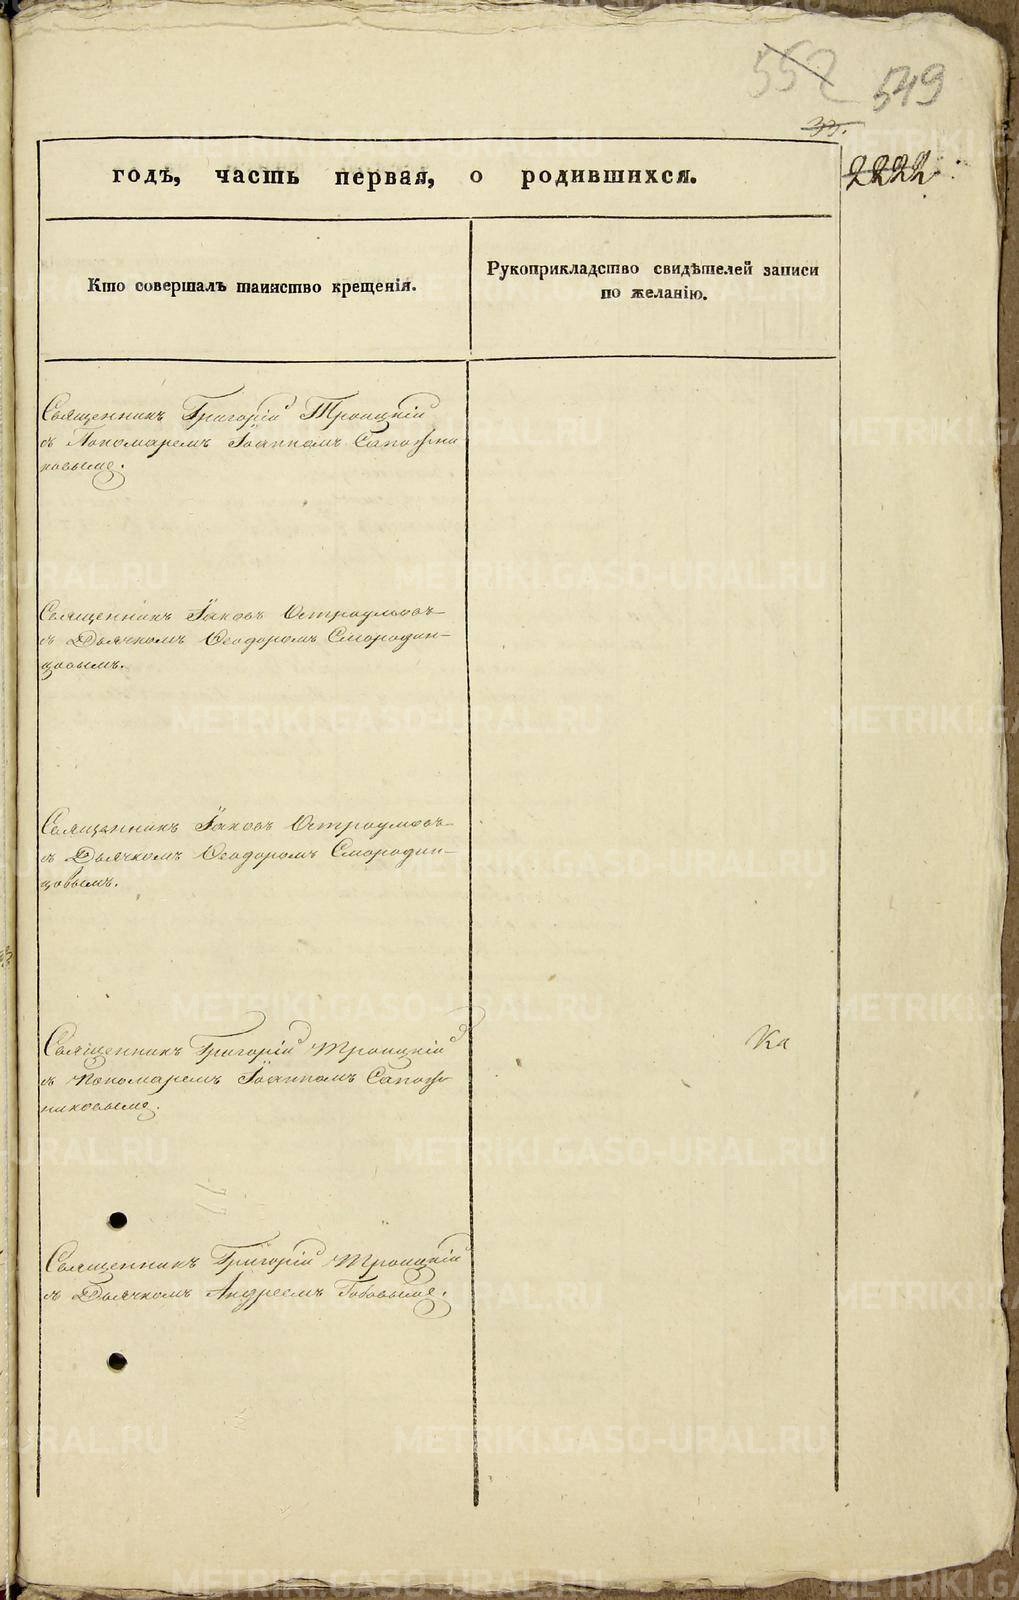 552 549
33.
2222
годѣ, часть первая, о родившихся.
Кто совершалъ таинство крещенія.
Рукоприкладство свидѣтелей записи
по желанію.
Священникъ Григорій Троицкій
съ Пономаремъ Іоанномъ Сапожни
ковымъ.
Священникъ Іаковъ Остроумовъ
съ Дьячкомъ Ѳеодоромъ Смородин-
цовымъ.
Священникъ Іаковъ Остроумовъ
съ Дьячкомъ Ѳеодоромъ Смородин-
цовымъ.
Священникъ Григорій Троицкій
съ Пономаремъ Іоанномъ Сапож
никовымъ.
Ка
Священникъ Григорій Троицкій
съ Дьячкомъ Андреемъ
METRIKI.GASO-URAL.RU